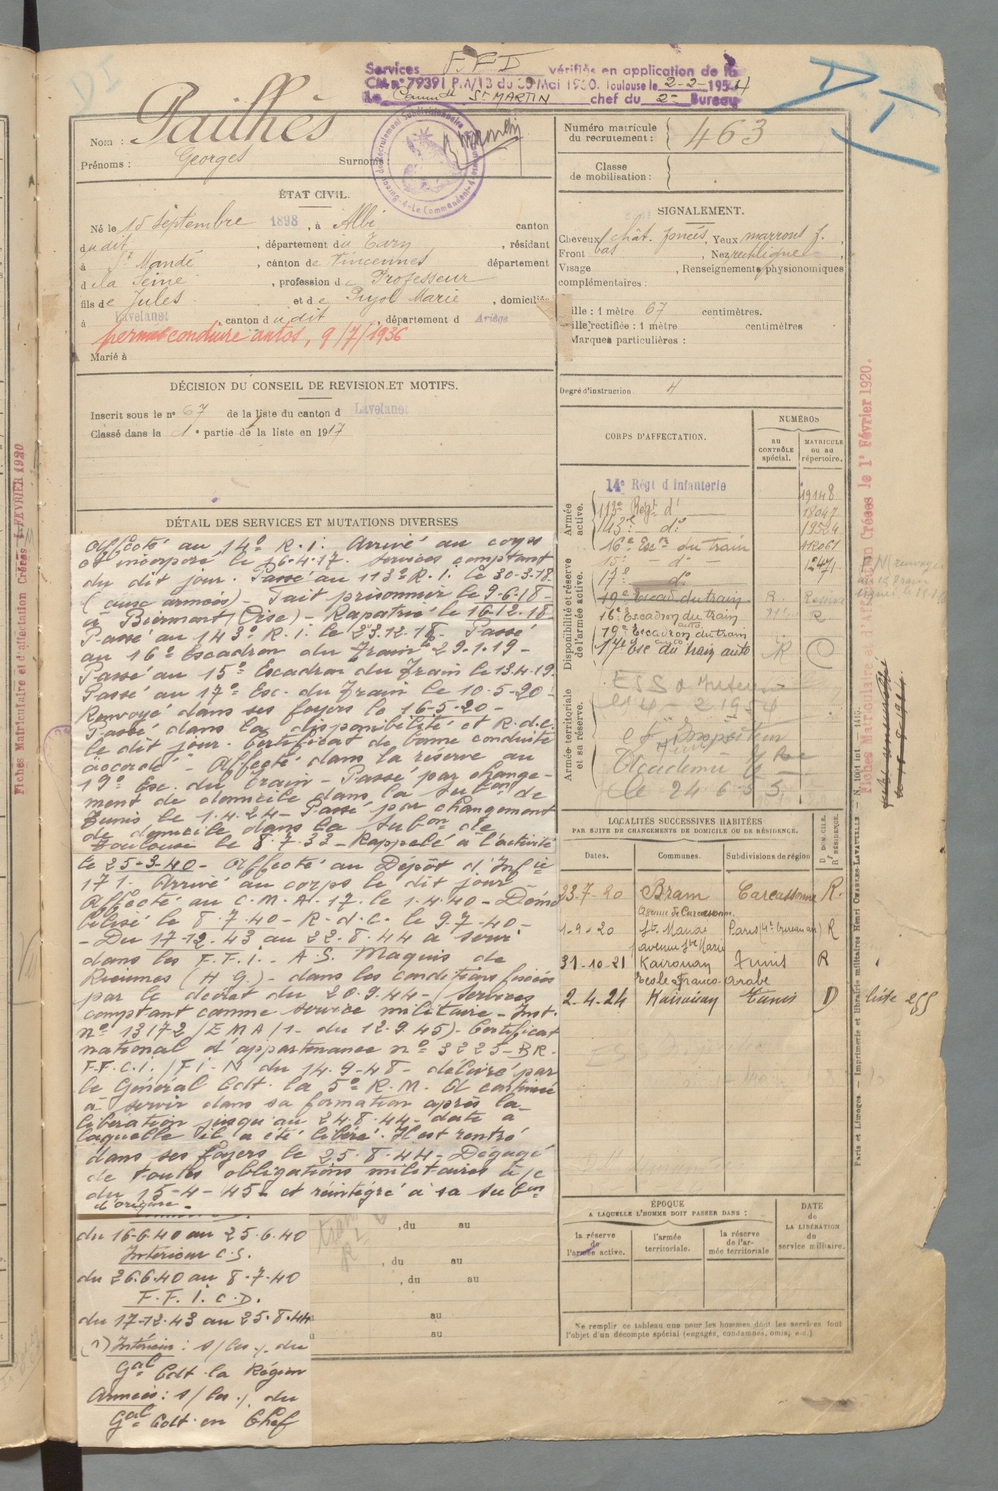 Services F.F.I vérifiés en application de la
CM n° 79391 P.M/13 du 30 Mai 1950. Toulouse le 2-2-1954
Le Comm^dt S^t MARTIN chef du 2^e Bureau
Nom : Pailhès
Prénoms : Georges Surnoms :
ÉTAT CIVIL.
Né le 15 Septembre 1898, à Albi canton
dudit, département du Tarn, résidant
à S^t Mandé, canton de Vincennes département
de la Seine, profession de Professeur
fils de Jules et de Pujol Marie, domiciliés
à Lavelanet canton dudit, département d Ariège
permis conduire autos, 9/7/1936
Marié à
DÉCISION DU CONSEIL DE REVISION ET MOTIFS.
Inscrit sous le n° 67 de la liste du canton d Lavelanet
Classé dans la 1^e partie de la liste en 1917
DÉTAIL DES SERVICES ET MUTATIONS DIVERSES
Affecté au 14° R.I. Arrivé au corps
et incorporé le 16.4.17. services comptant
du dit jour. Passé au 113° R.I. le 30-3-18.
(aux armées) - Fait prisonnier le 9-6-18 -
à Biermont (Oise) - Rapatrié le 16-12-18
Passé au 143° R.I. le 23.12.18 - Passé
au 16° Escadron du Train le 29-1-19 -
Passé au 15° Escadron du Train le 13-4-19
Passé au 17° Esc. du Train le 10-5-20 -
Renvoyé dans ses foyers le 16-5-20 -
Passé dans la disponibilité et R.d.l.
le dit jour. Certificat de bonne conduite
accordé - Affecté dans la réserve au
19° Esc. du Train - Passé par change-
ment de domicile dans la Sub^on de
Tunis le 1.4.24 - Passé par changement
de domicile dans la Sub^on de
Toulouse le 8-7-33 - Rappelé à l'activité
le 25-3-40 - Affecté au Dépôt d'Inf^ie
171. Arrivé au corps le dit jour
Affecté au C.M.A. 17. le 1.4.40 - Démo
bilisé le 8.7.40 - R.d.c. le 9.7.40 -
- Du 17-12-43 au 22-8-44 a servi
dans les F.F.I. - A.S. Maquis de
Rieumes (H.G.) - dans les conditions fixées
par le décret du 20.9.44 - (services
comptant comme service militaire - Inst.
n° 13172/EMA/1- du 12.9.45) - Certificat
national d'appartenance n° 3225-BR.
F.F.C.I./F.I.-N du 14-9-48 - délivré par
le Général Cdt. la 5° R.M. A continué
à servir dans sa formation après la
libération jusqu'au 24.8.44 - date à
laquelle il a été libéré. Il est rentré
dans ses foyers le 25-8-44 - Dégagé
de toutes obligations militaires à/c
du 15-4-45 - et réintégré à sa sub^on
d'origine -
du 16-6-40 au 25.6.40
Intérieur C.S.
du 26.6.40 au 8.7.40
F.F.I. C.D.
du 17-12.43 au 25.8.44
(1) Intérieur : s/les . du
G^al Cdt la Région
Armées : s/les . du
G^al Cdt en Chef
, du au
, du au
, du au
au
au
Numéro matricule du recrutement : 463
Classe de mobilisation :
SIGNALEMENT.
Cheveux chât. foncés, Yeux marrons f.,
Front bas, Nez rectiligne
Visage, Renseignements physionomiques
complémentaires :
Taille : 1 mètre 67 centimètres.
Taille rectifiée : 1 mètre centimètres
Marques particulières :
Degré d'instruction 4
CORPS D'AFFECTATION.
NUMÉROS
AU CONTRÔLE spécial.
MATRICULE ou au répertoire.
Armée active.
14° Régt d'Infanterie 19148
113° Régt d° 18047
143° d° 19524
16° Esc^n du train
15° - d° - 12471
17° d°
Disponibilité et réserve de l'armée active.
19° Escad du train R.
16° Escadron du train R
19° Escadron du train
17° Esc du train auto R
Armée territoriale et sa réserve.
LOCALITÉS SUCCESSIVES HABITÉES
PAR SUITE DE CHANGEMENTS DE DOMICILE OU DE RÉSIDENCE.
Dates. Communes. Subdivisions de région D. DOMICILE. R. RÉSIDENCE.
23-7-20 Bram Carcassonne R.
1-9-20 S^t Mandé Paris (4^e bureau) R
avenue S^te Marie
31-10-21 Kairouan Tunis R
Ecole Franco-Arabe
2-4-24 Kairouan Tunis D liste 255
ÉPOQUE
A LAQUELLE L'HOMME DOIT PASSER DANS :
la réserve de l'armée active.
l'armée territoriale.
la réserve de l'armée territoriale
DATE de LA LIBÉRATION du service militaire.
Ne remplir ce tableau que pour les hommes dont les services font
l'objet d'un décompte spécial (engagés, condamnés, omis, e.c.)
Fiches Matriculaire et d'affectation Créées le 1^r Février 1920.
Fiches Matriculaire et d'affectation Créées 1^r FÉVRIER 1920
Paris et Limoges. — Imprimerie et librairie militaires Henri CHARLES-LAVAUZELLE